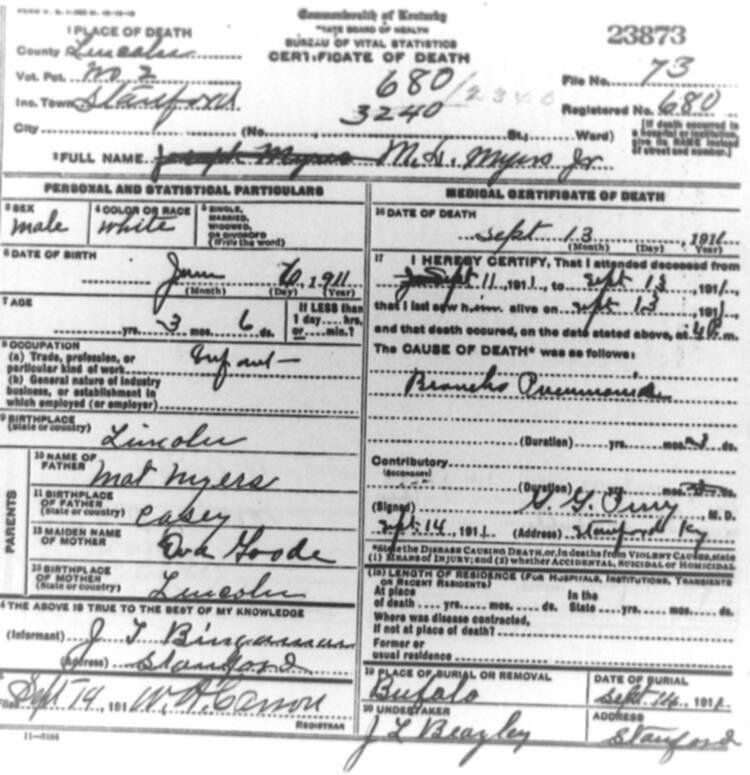 FORM V. S. 1
Commonwealth of Kentucky
STATE BOARD OF HEALTH
BUREAU OF VITAL STATISTICS
CERTIFICATE OF DEATH
23873
1 PLACE OF DEATH
County Lincoln
Vot. Pct. No 2
Inc. Town Stanford
City (No. St., Ward)
680 / 2340
3240
File No. 73
Registered No. 680
[If death occurred in a hospital or institution, give its NAME instead of street and number.]
2 FULL NAME Joseph Myers M. Myers Jr
PERSONAL AND STATISTICAL PARTICULARS
3 SEX
male
4 COLOR OR RACE
white
5 SINGLE, MARRIED, WIDOWED, OR DIVORCED (Write the word)
6 DATE OF BIRTH
6, 1911
(Month) (Day) (Year)
7 AGE
yrs. 3 mos. 6 ds.
If LESS than 1 day ... hrs. or ... min.?
8 OCCUPATION
(a) Trade, profession, or particular kind of work Infant
(b) General nature of industry business, or establishment in which employed (or employer)
9 BIRTHPLACE
(State or country) Lincoln
PARENTS
10 NAME OF FATHER Mat Myers
11 BIRTHPLACE OF FATHER (State or country) Casey
12 MAIDEN NAME OF MOTHER Ova Goode
13 BIRTHPLACE OF MOTHER (State or country) Lincoln
14 THE ABOVE IS TRUE TO THE BEST OF MY KNOWLEDGE
(Informant) J T Bingaman
(Address) Stanford
15
Filed Sept 14, 191 W. A. Carson
REGISTRAR
11-5184
MEDICAL CERTIFICATE OF DEATH
16 DATE OF DEATH
Sept 13, 1911
(Month) (Day) (Year)
17 I HEREBY CERTIFY, That I attended deceased from
Sept 11, 1911, to Sept 13, 1911,
that I last saw him alive on Sept 13, 1911,
and that death occured, on the date stated above, at 4 P m.
The CAUSE OF DEATH* was as follows:
Broncho Pneumonia
(Duration) yrs. mos. 2 ds.
Contributory
(SECONDARY)
(Duration) yrs. mos. ds.
(Signed) M. D.
Sept 14, 1911 (Address) Stanford Ky
*State the DISEASE CAUSING DEATH, or, in deaths from VIOLENT CAUSES, state
(1) MEANS OF INJURY; and (2) whether ACCIDENTAL, SUICIDAL or HOMICIDAL
(18) LENGTH OF RESIDENCE (FOR HOSPITALS, INSTITUTIONS, TRANSIENTS OR RECENT RESIDENTS)
At place of death yrs. mos. ds. In the State yrs. mos. ds.
Where was disease contracted, If not at place of death?
Former or usual residence
19 PLACE OF BURIAL OR REMOVAL
Bufalo
DATE OF BURIAL
Sept 14, 1911
20 UNDERTAKER
J L Beazley
ADDRESS
Stanford